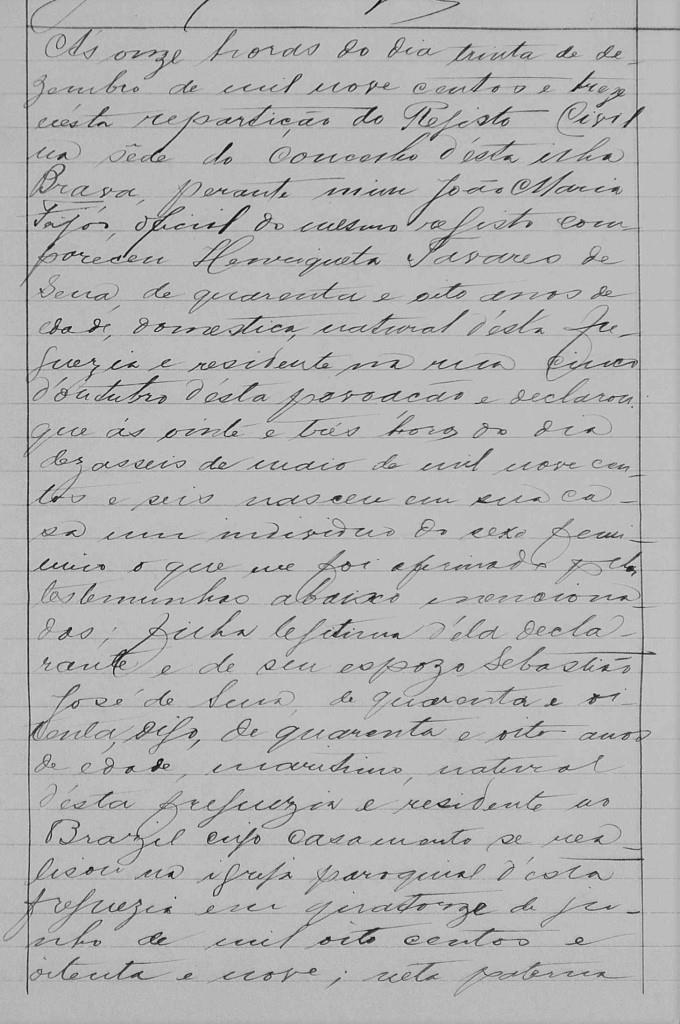 Ás onze horas do dia trinta de de-
zembro de mil nove centos e treze
nésta repartição do Registo Civil
na séde do concenho d'ésta ilha
Brava, perante mim João Maria
oficial do mesmo registo com-
pareceu Henriqueta Tavares de
Sena, de quarenta e oito anos de
edade, domestica, natural d'ésta fre-
guezia e residente na rua Cinco
d'outubro d'ésta povoação e declarou
que ás vinte e três horas do dia
dezasseis de maio de mil nove cen-
tos e seis nasceu em sua ca-
sa um individuo do sexo femi-
nino o que me foi afirmado pelas
testemunhas abaixo menciona-
das; filha legitima d'ela decla-
rante e de seu espozo Sebastião
José de Sena, de quarenta e oi-
tenta, digo, de quarenta e oito anos
de edade, maritimo, natural
d'ésta freguezia e residente no
Brazil cujo casamento se rea-
lisou na igreja paroquial d'ésta
freguezia em quatorze de ju-
nho de mil oito centos e
oitenta e nove; neta paterna